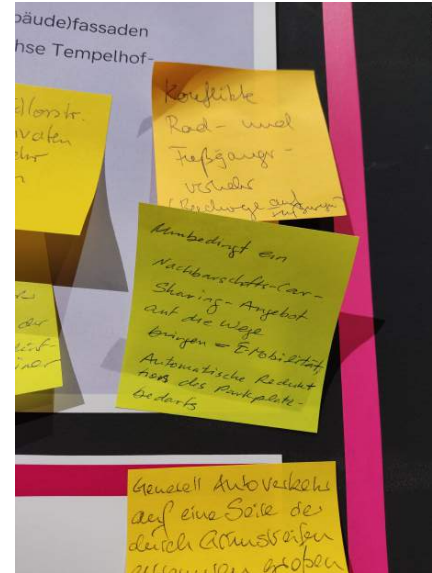 bäude)fassaden
hse Tempelhof-
Konflikte
Rad- und
Fußgänger-
verkehr
(Radwege auf
lorstr.
ivaten
Unbedingt ein
Nachbarschafts-Car-
Sharing-Angebot
auf die Wege
bringen = E-Mobilität
Automatische Redukt
tion des Parkplatz-
bedarfs
der
Generell Autoverkehr
auf eine Seite der
durch Grünstreifen
großen